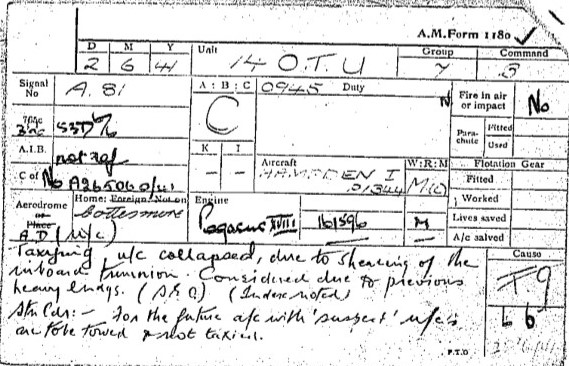 A.M.Form 1180
D M Y Unit Group Command
2 6 41 14 O.T.U 7 B
Signal No A. 81 A : B : C 0945 Duty N Fire in air or impact No
C Para-chute Fitted
Used
A.I.B. not ref K I Aircraft W:R:M Flotation Gear
C of No A26506 0/41 - - HAMPDEN I Fitted
Aerodrome Home: Foreign: Not on Engine Worked
or Place Cottesmore Pegasus XVIII 161596 M Lives saved
A.D (U/c) A/c salved
Taxying u/c collapsed, due to shearing of the Cause
inboard trunnion. Considered due to previous T.9
heavy lndgs. (Index noted)
Stn Cdr:- For the future a/c with 'suspect' u/c's 6 6
are to be towed & not taxied.
P.T.O